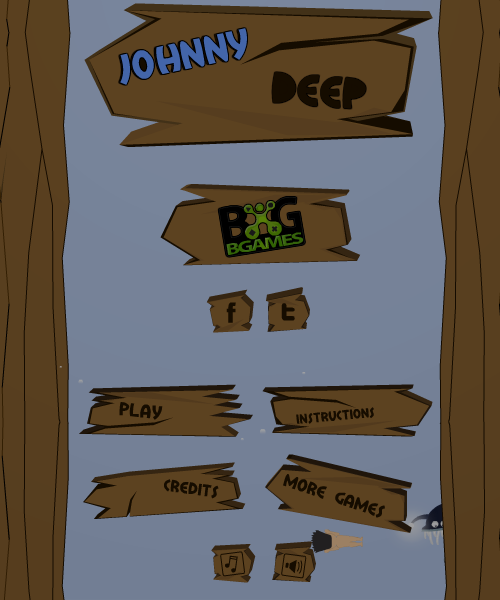 JOHNNY
DEEP
BG
BGAMES
f t
PLAY
INSTRUCTIONS
CREDITS
MORE GAMES